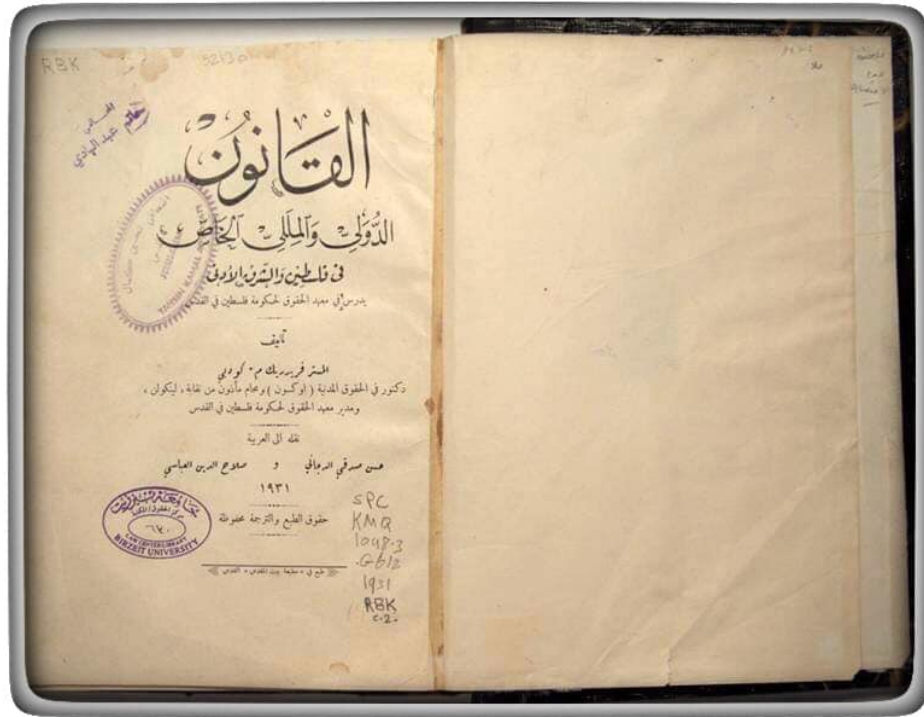 RBK
52130
المحامي
عبد الهادي
القانون
الدُّوَلِيّ وَالمِلَلِيّ الخَاصّ
في فلسطين والشرق الأدنى
يدرس في معهد الحقوق لحكومة فلسطين في القدس
تأليف
المستر فريدريك م. كودبي
دكتور في الحقوق المدنية ( اوكسون ) ومحام مأذون من نقابة « لينكولن »
ومدير معهد الحقوق لحكومة فلسطين في القدس
نقله الى العربية
حسن صدقي الدجاني و صلاح الدين العباسي
١٩٣١
حقوق الطبع والترجمة محفوظة
طبع في « مطبعة بيت المقدس » القدس
جامعة بيرزيت
٦٧٠
LAW CENTER LIBRARY
BIRZEIT UNIVERSITY
SPC
KMQ
1048.3
.G612
1931
RBK
c.2.